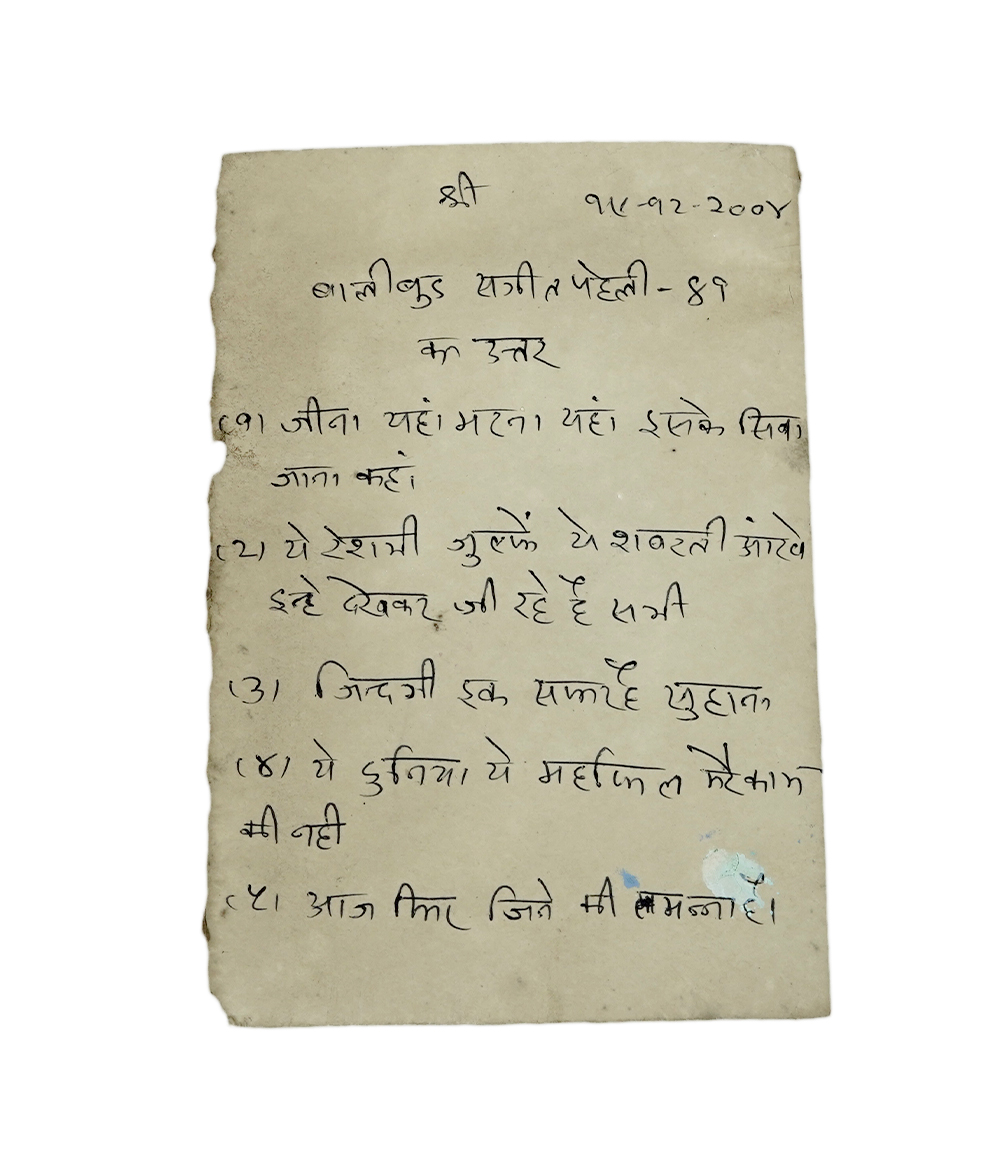 श्री
१५-१२-२००४
बालीबुड संगीत पहेली - ४१
का उत्तर
(१) जीना यहां मरना यहां इसके सिवा
जाना कहां
(२) ये रेशमी जुल्फें ये शबरती आंखे
इन्हे देखकर जी रहे है सभी
(३) जिन्दगी इक सफर है सुहाना
(४) ये दुनिया ये महफिल मेरे काम
की नही
(५) आज फिर जिने की तमन्ना है।